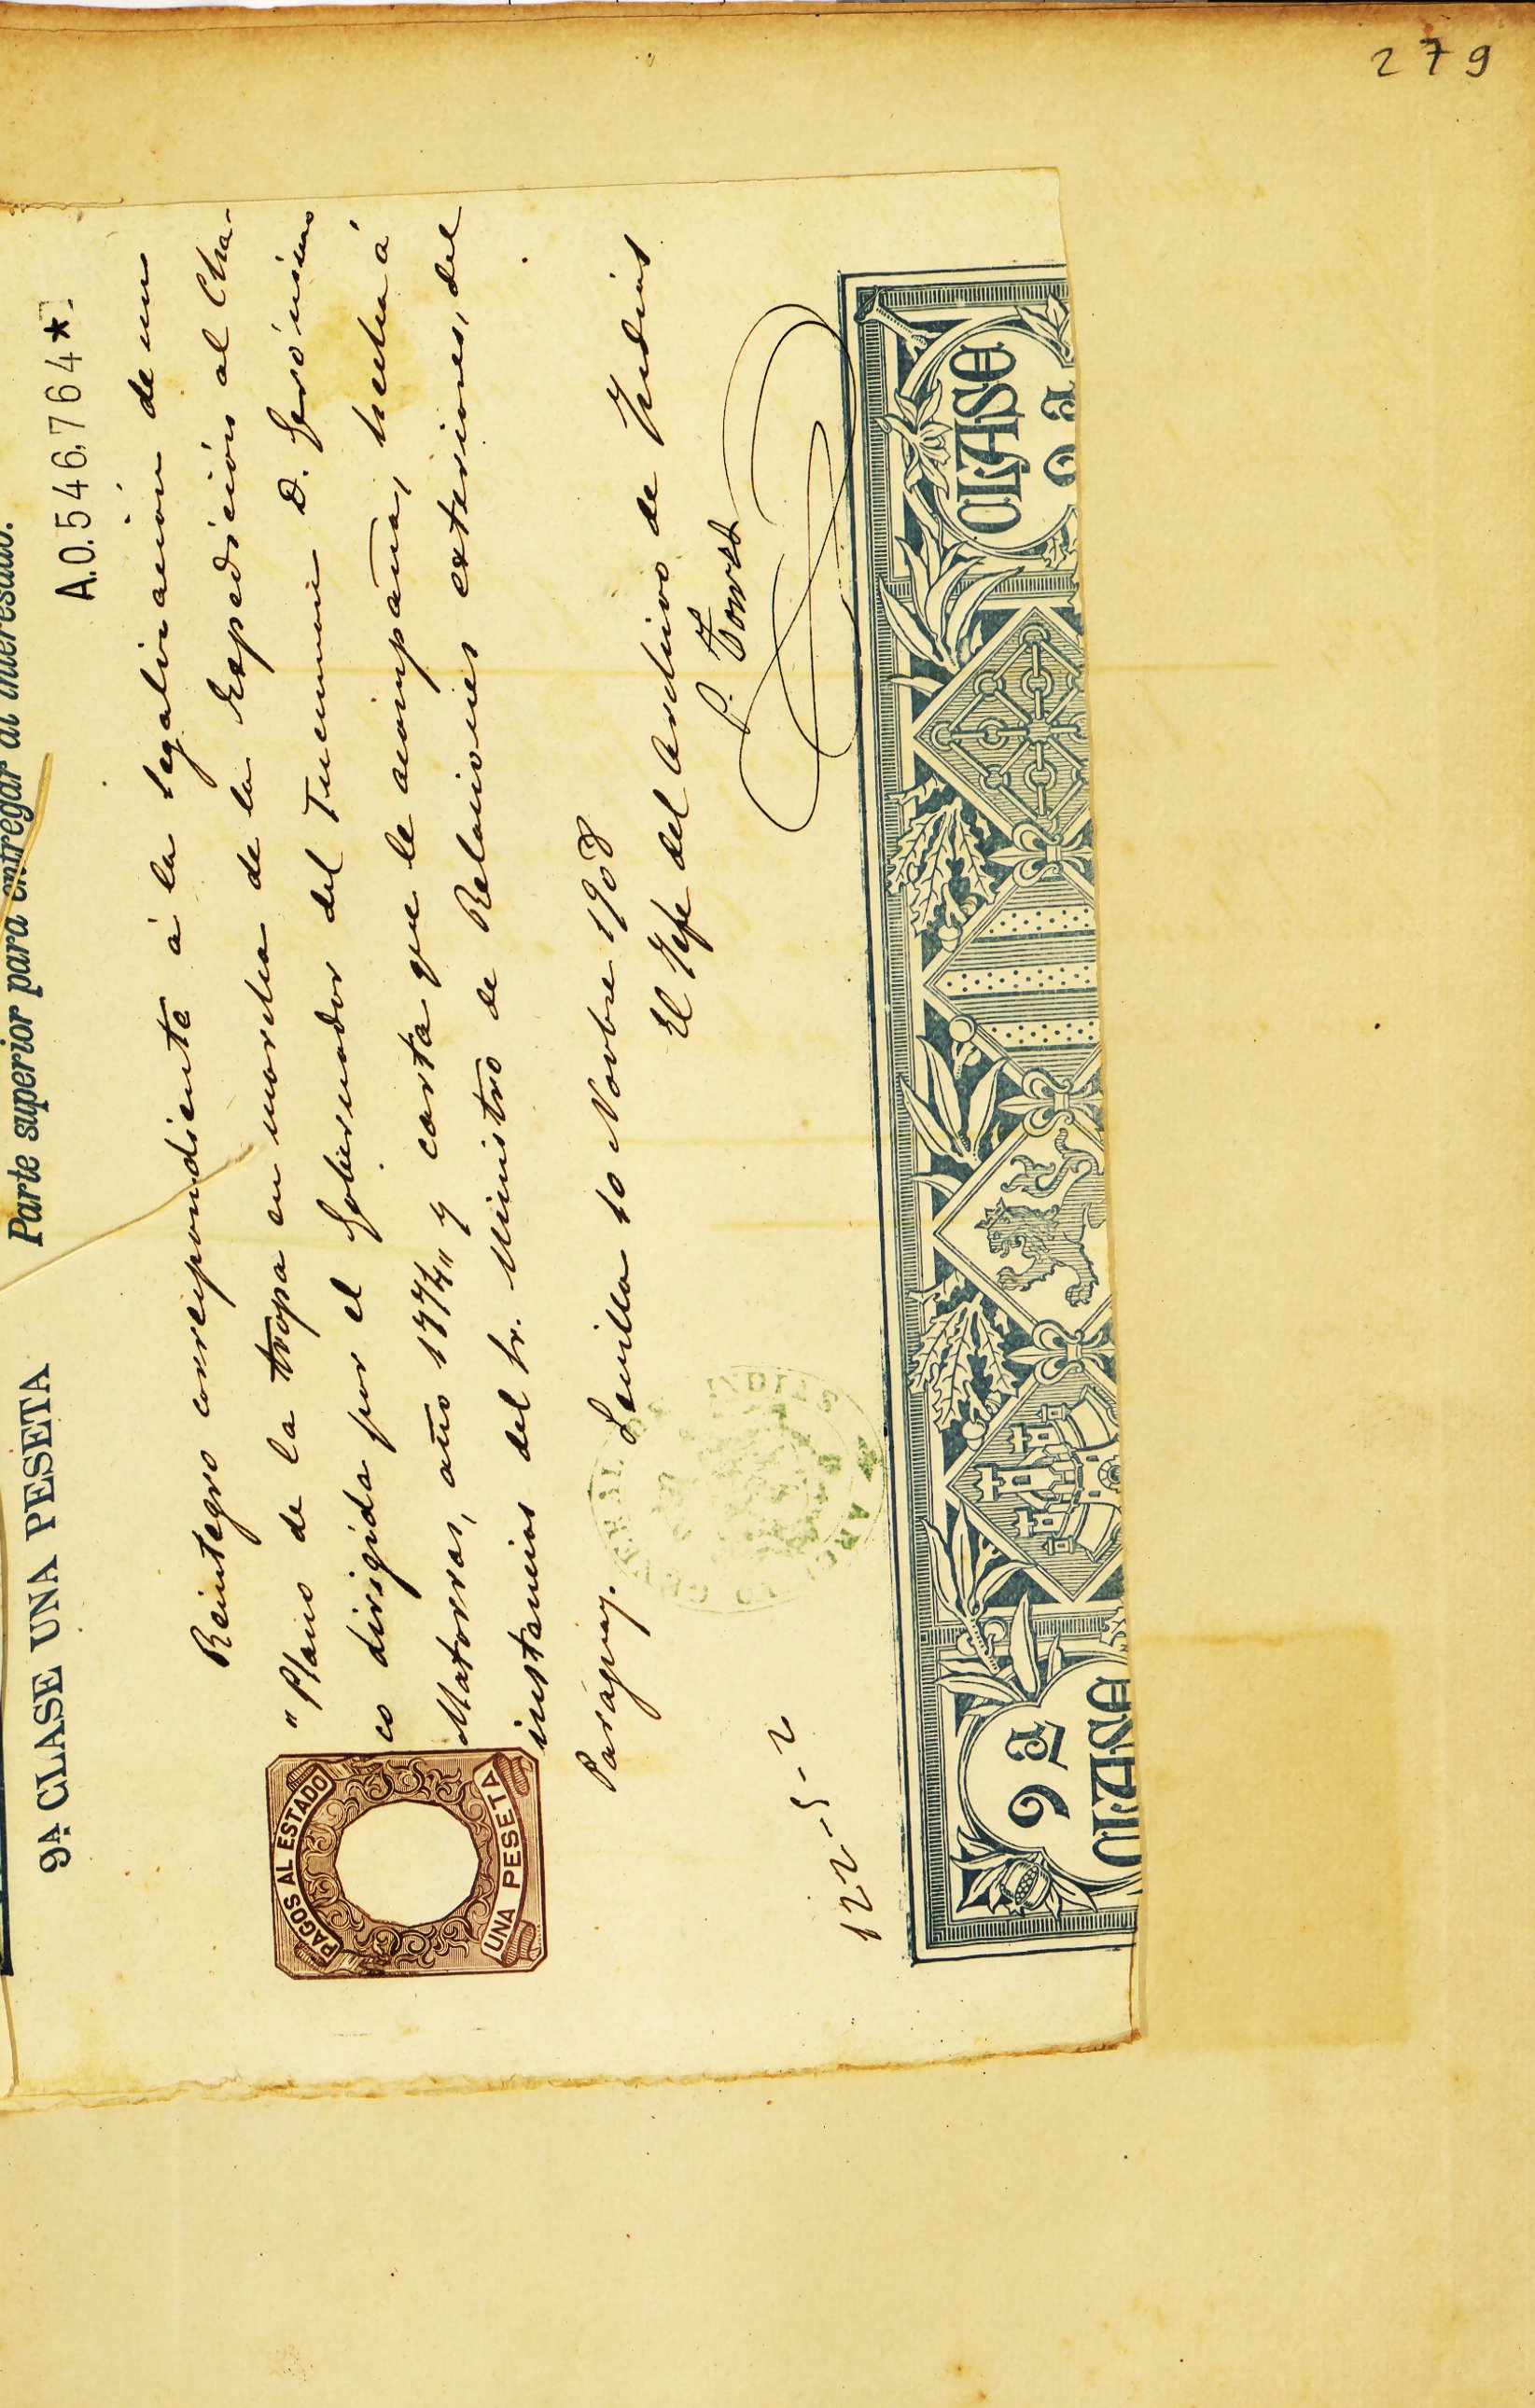 279
Parte superior para entregar al interesado.
9ª CLASE UNA PESETA
A.0.546,764*
Reintegro correspondiente á la legalización de un
"Plano de la tropa en marcha de la Expedición al Cha-
co dirigida por el Gobernador del Tucuman D. Gerónimo
Matorras, año 1774" y carta que le acompaña, hecha á
instancias del Sr. Ministro de Relaciones exteriores, del
Paraguay.
Sevilla 10 Novbre 1908
El Jefe del Archivo de Indias
P. Torres
PAGOS AL ESTADO
UNA PESETA
ARCHIVO GENERAL DE INDIAS
122-5-2
9ª
CLASE
CLASE
9ª